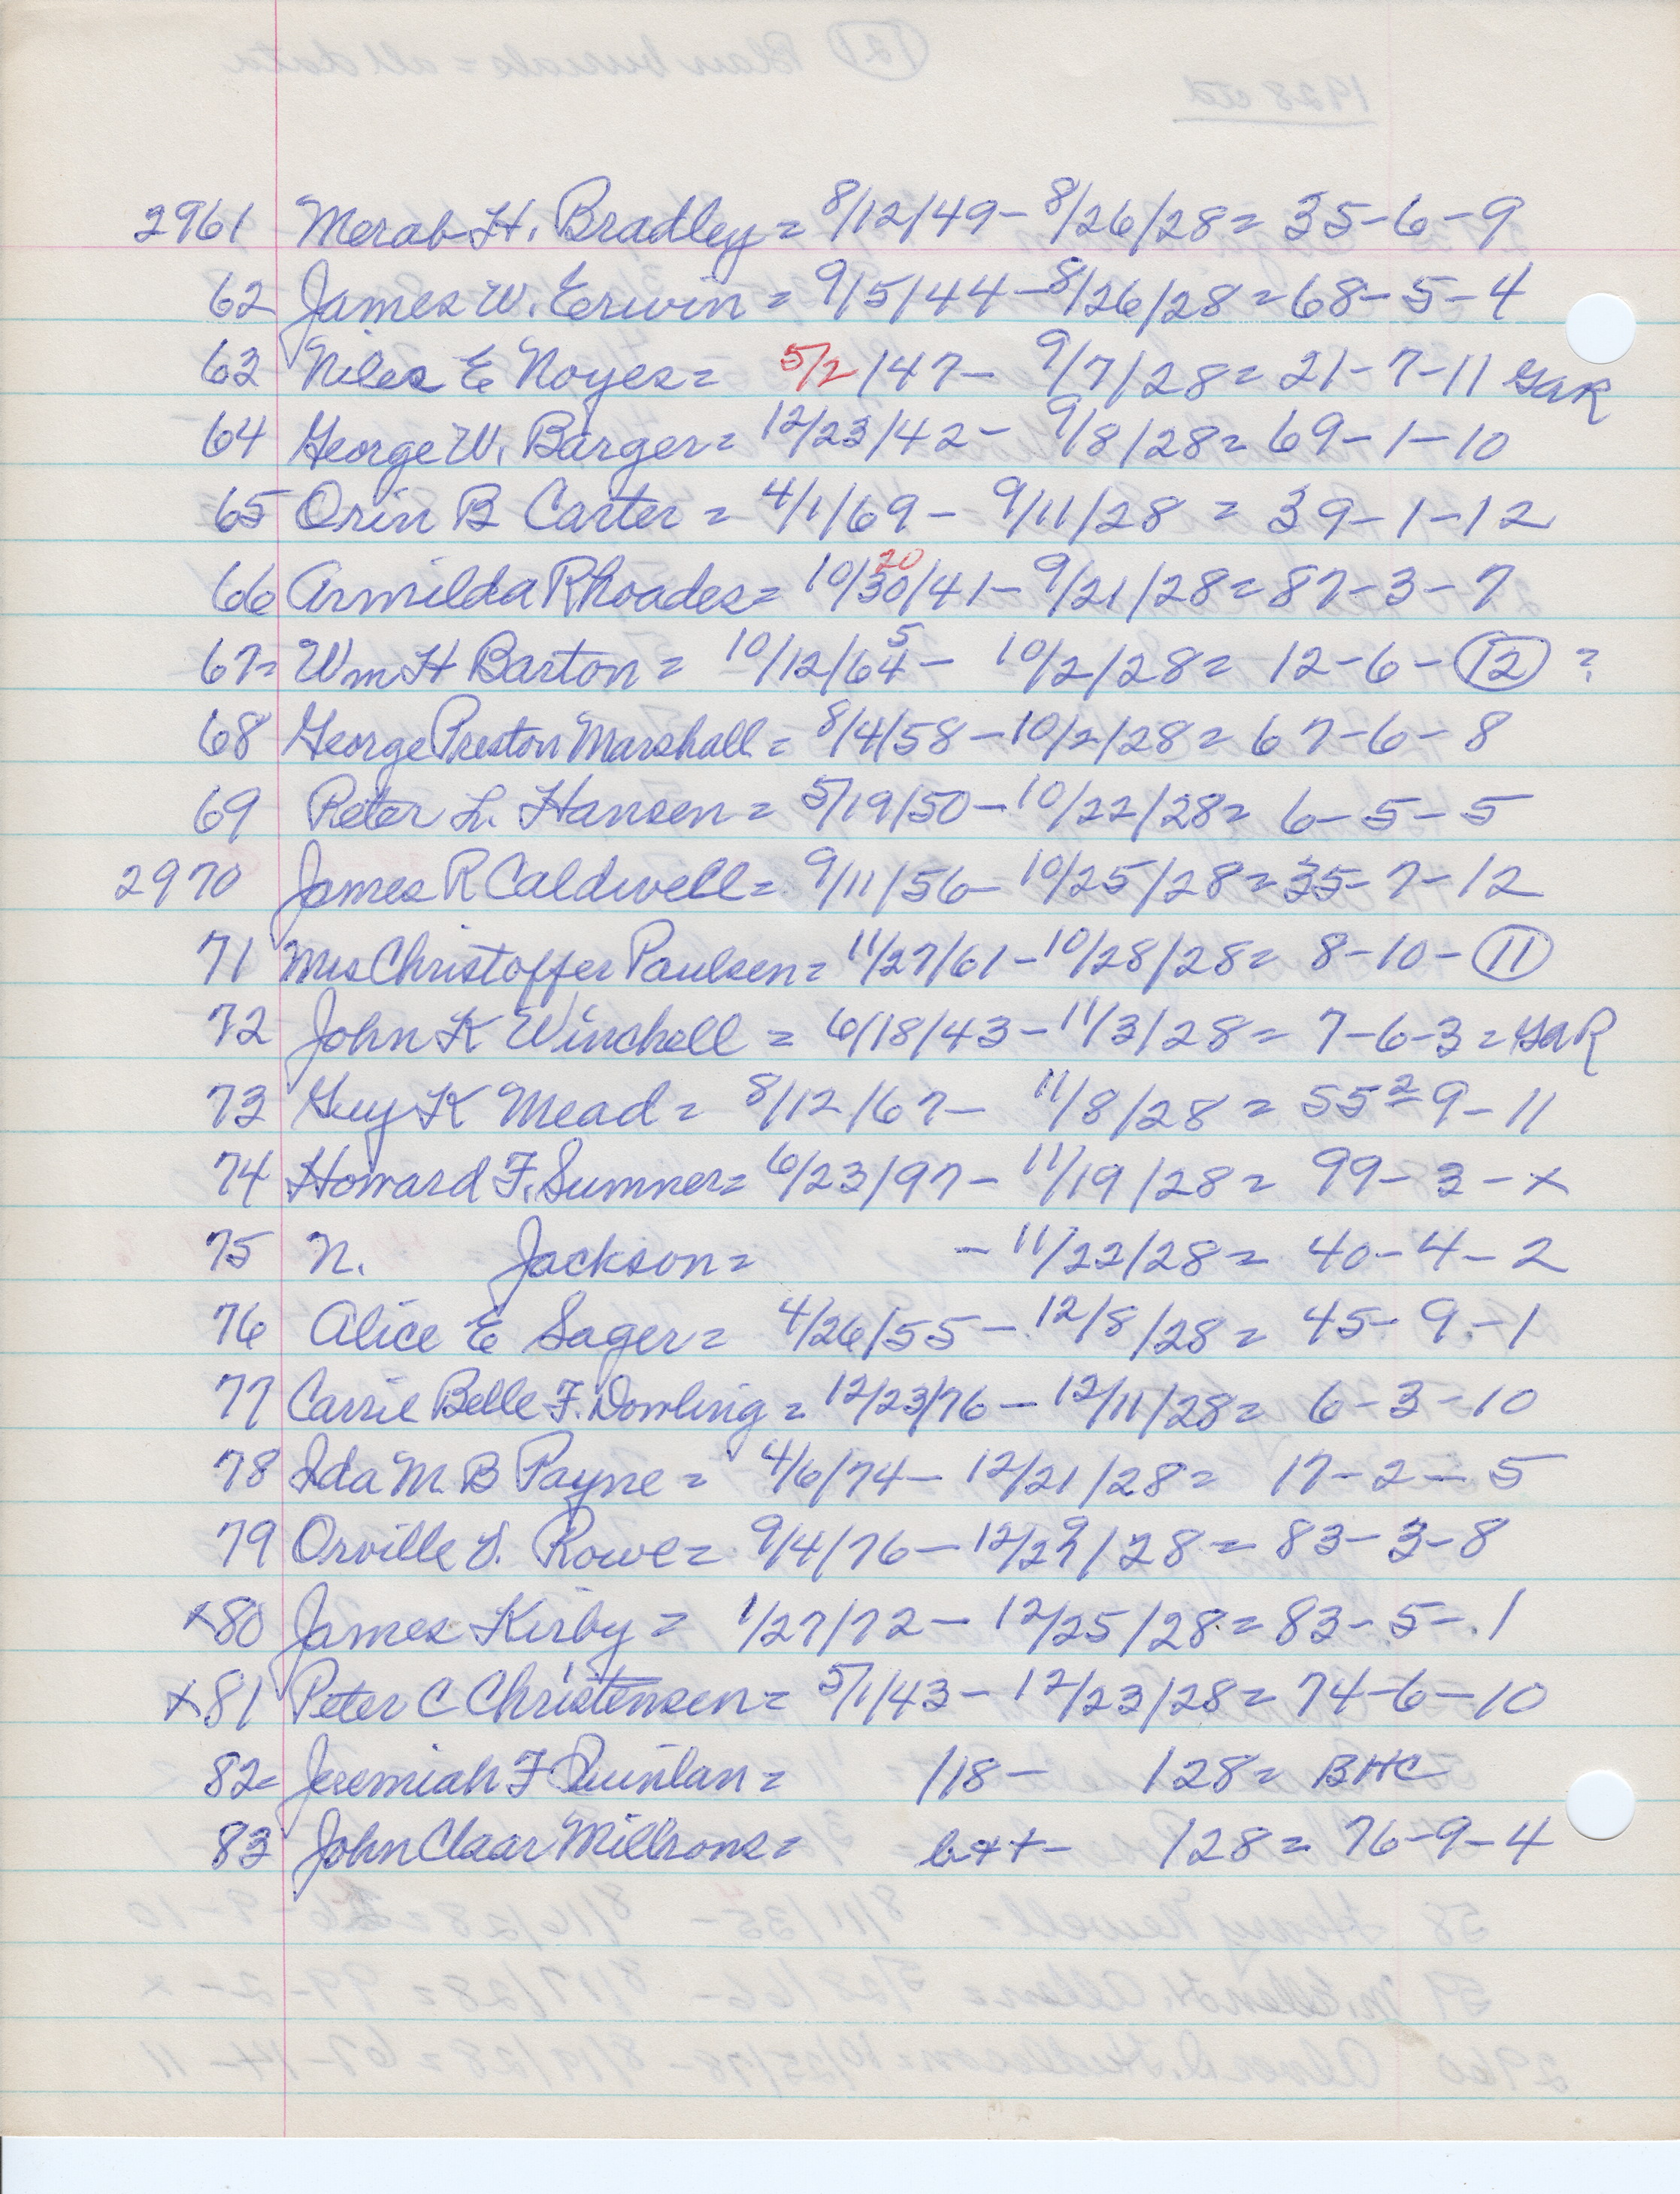 2961 Merab H. Bradley = 8/12/49 - 8/26/28 = 35-6-9
62 James W. Erwin = 9/5/44 - 8/26/28 = 68-5-4
63 Niles E Noyes = 5/2/47 - 9/7/28 = 21-7-11 GAR
64 George W. Barger = 12/23/42 - 9/8/28 = 69-1-10
65 Orin B Carter = 4/1/69 - 9/11/28 = 39-1-12
20
66 Armilda Rhoades = 10/30/41 - 9/21/28 = 87-3-7
5
67 = Wm H Barton = 10/12/64 - 10/2/28 = 12-6-12 ?
68 George Preston Marshall = 8/4/58 - 10/2/28 = 67-6-8
69 Peter L. Hansen = 5/19/50 - 10/22/28 = 6-5-5
2970 James R Caldwell = 9/11/56 - 10/25/28 = 35-7-12
71 Mrs Christoffer Paulsen = 11/27/61 - 10/28/28 = 8-10-11
72 John K Winchell = 6/18/43 - 11/3/28 = 7-6-3 = GAR
73 Guy K Mead = 8/12/67 - 11/8/28 = 55 2 - 9-11
74 Howard F. Sumner = 6/23/97 - 11/19/28 = 99-3-x
75 N. Jackson = - 11/22/28 = 40-4-2
76 Alice E Sager = 4/26/55 - 12/8/28 = 45-9-1
77 Carrie Belle F. Dowling = 12/23/76 - 12/11/28 = 6-3-10
78 Ida M. B Payne = 4/6/74 - 12/21/28 = 17-2-5
79 Orville S. Rowe = 9/4/76 - 12/29/28 = 83-3-8
x80 James Kirby = 1/27/72 - 12/25/28 = 83-5-1
x81 Peter C Christensen = 5/1/43 - 12/23/28 = 74-6-10
82 = Jeremiah F Quinlan = /18 - /28 = BHC
83 John Claar Millrons = b++ - /28 = 76-9-4